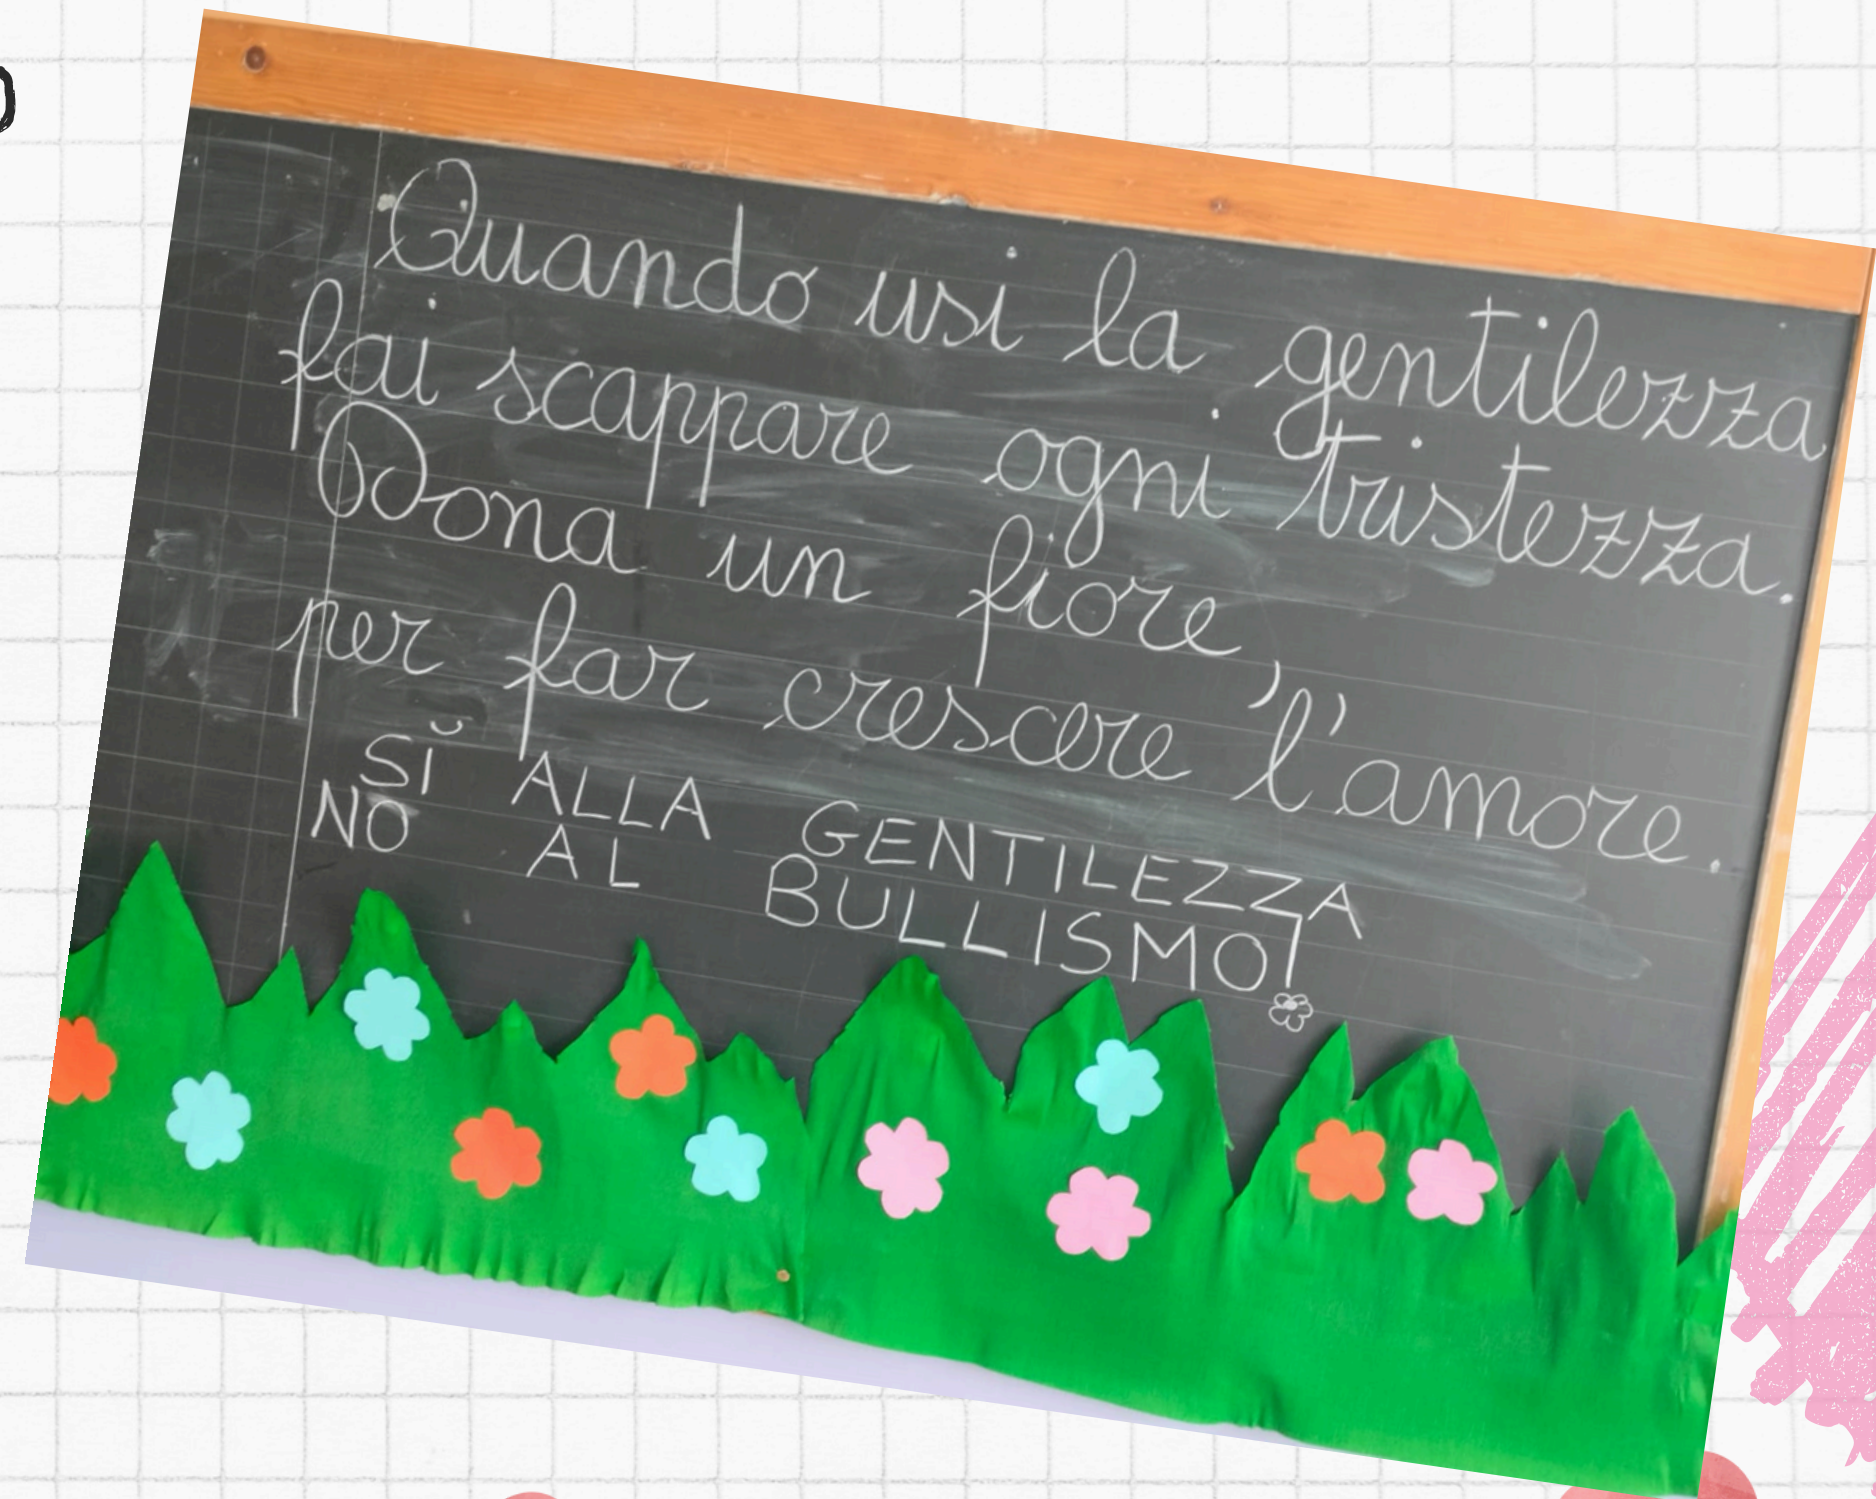 Quando usi la gentilezza
fai scappare ogni tristezza.
Dona un fiore,
per far crescere l'amore.
SĬ ALLA GENTILEZZA
NO AL BULLISMO!